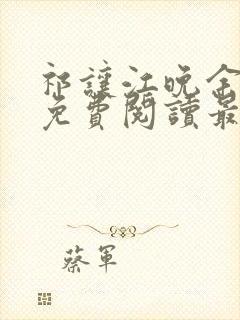 祁讓江晚余
免費閱讀最
蔡軍